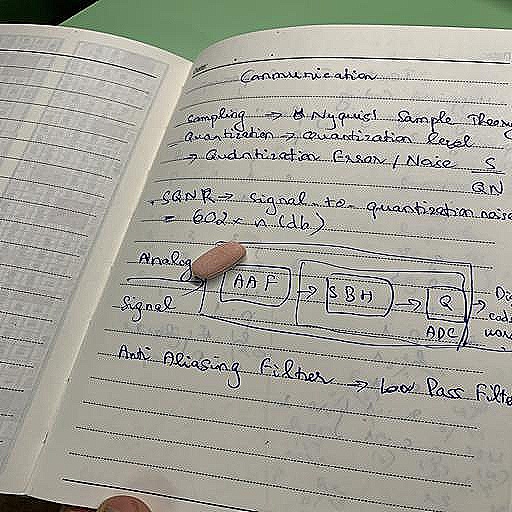 Communication
Sampling → Nyquist Sample Theory
- Quantization → Quantization level
→ Quantization Error/Noise S
QN
SQNR → Signal to quantization noise
= 602 x n (db)
Analog
Signal
AAF → SBH → Q →
ADC
Anti Aliasing Filter → Low Pass Filte